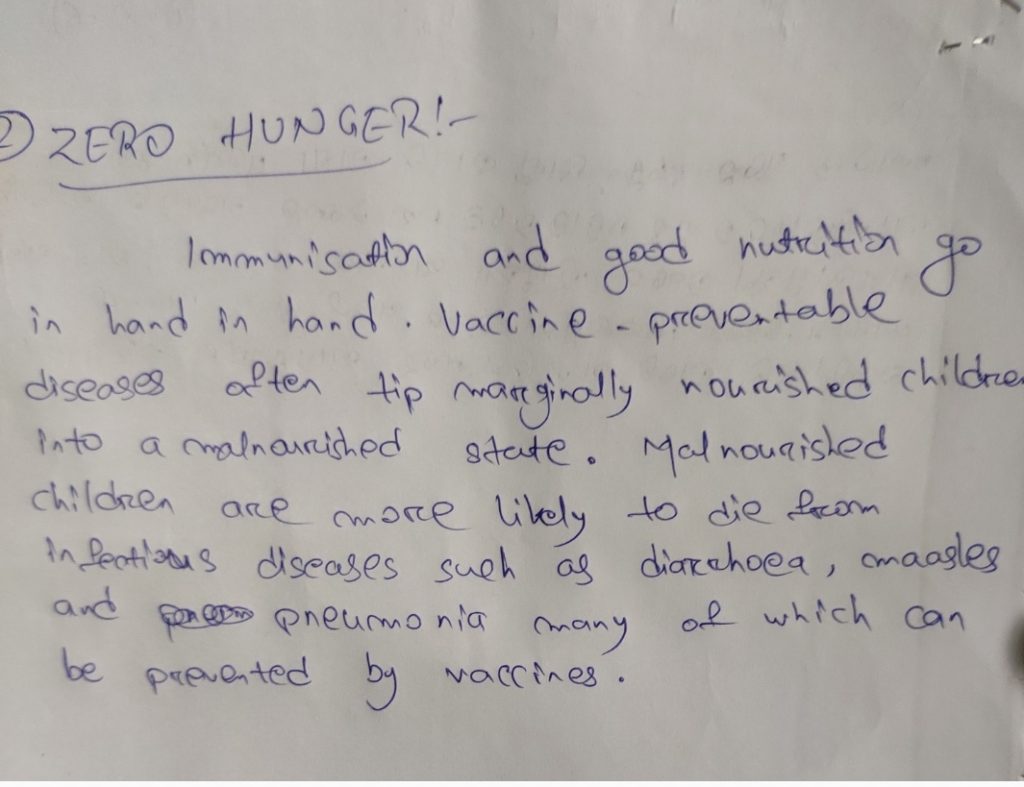 2) ZERO HUNGER!-
Immunisation and good nutrition go
in hand in hand. Vaccine-preventable
diseases often tip marginally nourished children
into a malnourished state. Malnourished
children are more likely to die from
infectious diseases such as diarrhoea, maasles
and pneumonia many of which can
be prevented by vaccines.